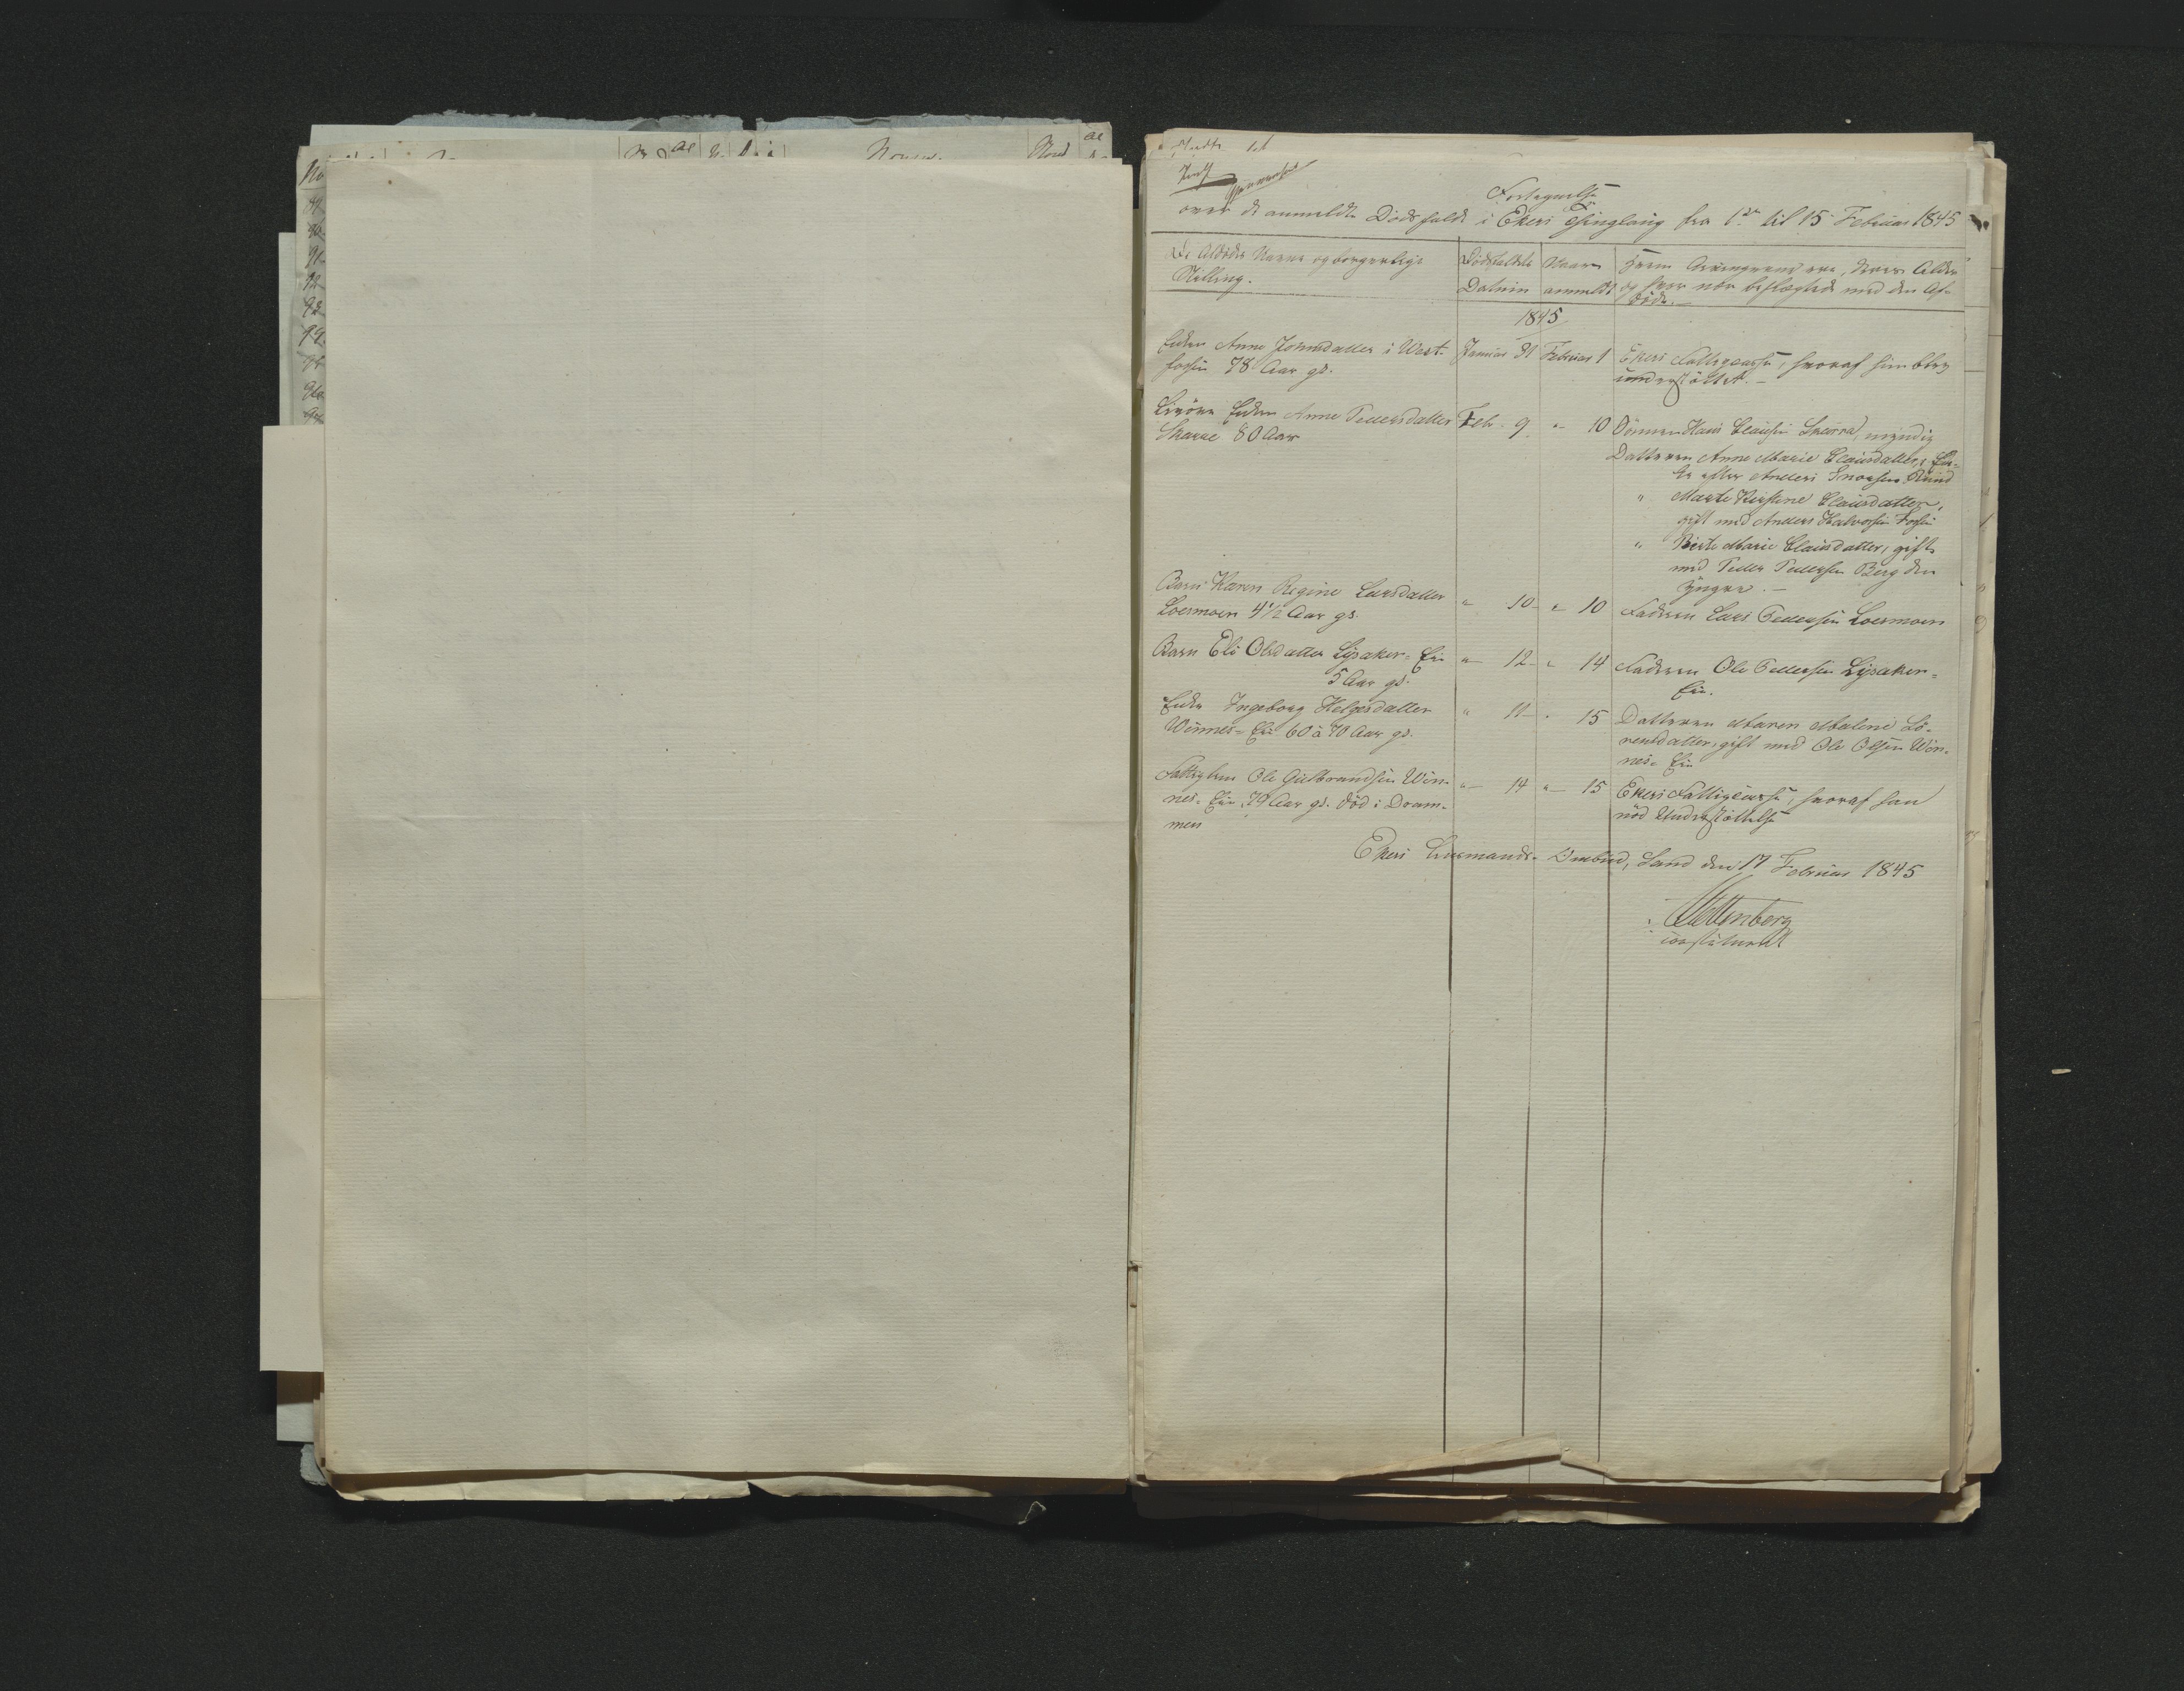 Fortegnelse
over de anmeldte Dödsfalde i Ekers Thinglaug fra 1ste til 15 Februar 1845
De Afdödes Navne og borgerlige
Stilling.
Dödsfaldets
Datum
Naar
anmeldt
Hvem Arvingerne ere, deres Alder
og hvor nær beslægtede med den Af-
döde.
1845
Enken Anne Jonsdatter i West-
fossen 78 Aar gl.
Januar 31 Februar 1
Ekers Fattigcasse, hvoraf hun blev
understöttet.
Enken Anne Pedersdatter
Skarre 80 Aar
Feb. 9 " 10
Sönnen Hans Clausen Skarra, myndig
Datteren Anne Marie Clausdatter, En-
ke efter Anders
" Marte Kirstine Clausdatter,
gift med Anders Halvorsen Fossen
" Birte Marie Clausdatter, gift
med Peder Pedersen Berg den
yngre.
Barn Karen Regine Larsdatter
Loesmoen 4 1/2 Aar gl.
" 10 " 10
Faderen Lars Pedersen Loesmoen
Barn Eli Olsdatter Lysaker-Eie
5 Aar gl.
" 12 " 14
Faderen Ole Pedersen Lysaker-
Eie.
Enke Ingeborg Helgesdatter
Winnes-Eie 60 à 70 Aar gl.
" 11 " 15
Datteren Maren Malene Lo-
rensdatter, gift med Ole Olsen Win-
nes-Eie
Fattiglem Ole Gulbrandsen Win-
nes-Eie, 79 Aar gl. död i Dram-
men
" 14 " 15
Ekers Fattigcasse, hvoraf han
nöd Understöttelse
Ekers Lensmands-Ombud, Sand den 17 Februar 1845
Stettenberg
constitueret